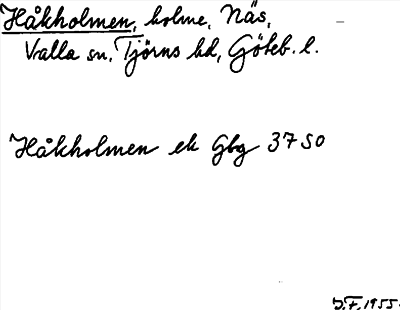 Håkholmen, holme, Näs,
Valla sn, Tjörns hd, Göteb. l.
Håkholmen ek Gbg 37 SO
J.F. 1955.